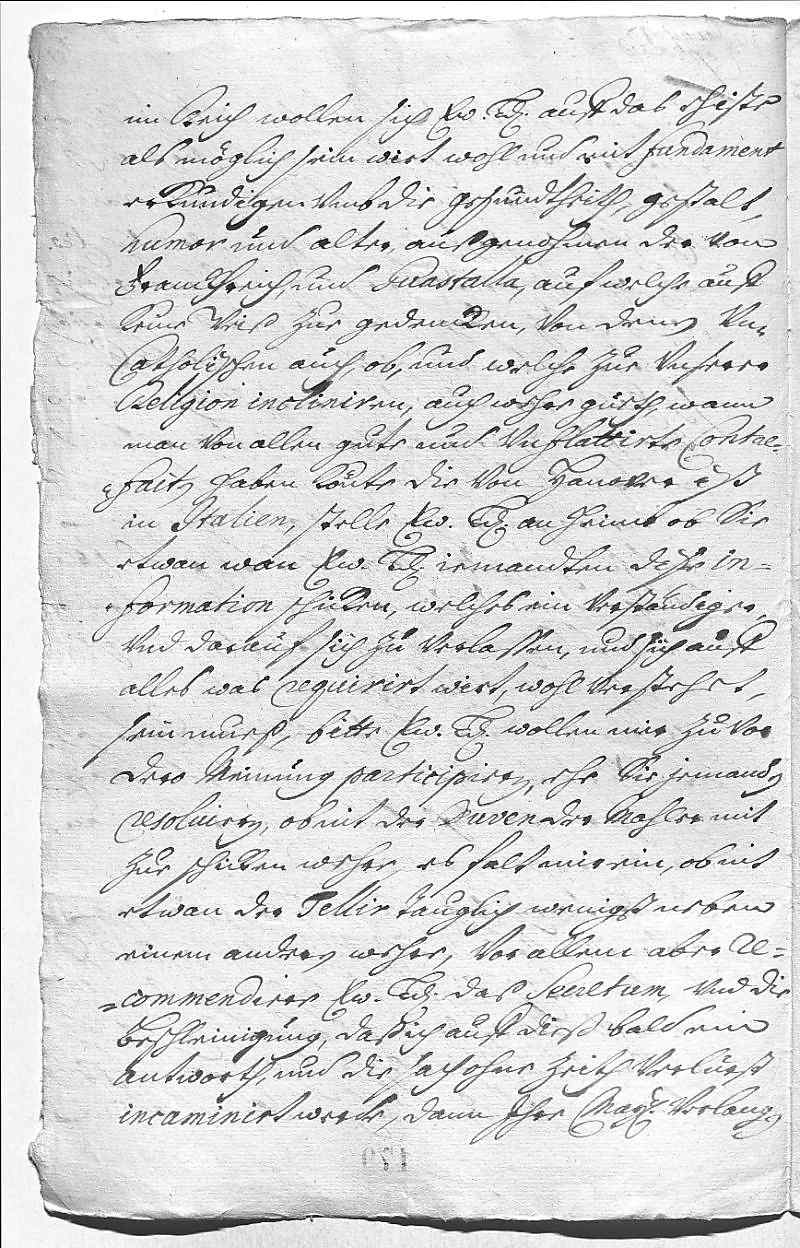 im Reich wollen sich Ew. Ld. auff das ehiste
als möglich sein wirt wohl und mit fundament
erkundigen umb die gesundtheith, gestalt,
humor und alter, ausgenohmen der von
Franckhreich, und Guastalla, auf welche auff
keine Weiß zur gedencken, von denen Un-
Catholischen auch, ob, und welche zur Unserer
Religion incliniren, auch wehre gueth, wann
man von allen gute und Unflattirte Contre-
faits haben könte die von Hanover ist
in Italien, stelle Ew. Ld. an heimb ob Sie
etwan wan Ew. Ld. iemandten dise in-
formation schicken, welches ein verständiger,
Und darauf sich zu verlassen, und sich auff
alles was requirirt wirt, wohl verstehet,
sein mueß, bitte Ew. Ld. wollen mir zuvor
dero Meinung participiren, ehe Sie iemanden
resolviren, ob nit der Mahler mit
zur schicken wehre, es falt mir ein, ob nit
etwan der Tellir tauglich wenigst neben
einem andern wehre, vor allem aber re-
commendiere Ew. Ld. das Secretum, Und die
beschleinigung, daß ich auff diß bald ein
antworth, und die sach ohne Zeith Verlurst
incaminirt werde, dann Ihre May. verlangen